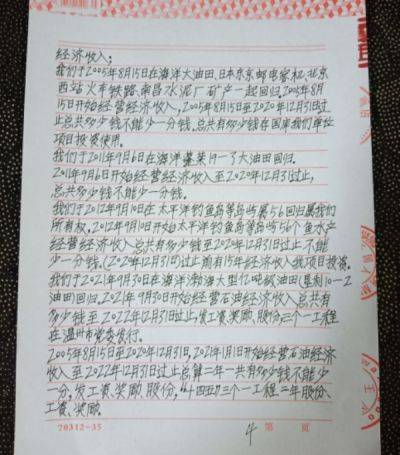 经济收入；
我们于2005年8月15日在海洋大油田、日本东京邮电家权、北京
西站火车铁路、南昌水泥厂矿产一起回归。2005年8月
15日开始经营经济收入，2005年8月15日至2020年12月31日过
止总共多少钱不能少一分钱。总共有多少钱在国库我们单位
项目投资使用。
我们于2011年9月6日在海洋蓬莱19一了大油田回归。
2011年9月6日开始经营经济收入至2020年12月31日过止，
总共多少钱不能少一分钱。
我们于2012年9月10日在太平洋钓鱼岛等岛屿属56回归属我们
所有权，2012年9月10日开始太平洋钓鱼岛等岛屿56个鱼水产
经营经济收入总共有多少钱至2020年12月31日过止不能
少一分钱。（2020年12月31日）过前有15年经济收入我项目投资。
我们于2021年9月30日在海洋渤海大型亿吨级油田（垦利10一2
油田）回归。2021年9月30日开始经营石油经济收入总共有
多少钱至2022年12月31日过止，发工资、奖励、股份，三个一工程
在温州市党委发行。
2005年8月15日至2020年12月31日，2021年1月1日开始经营石油经济
收入至2022年12月31日过止总算二年一共有多少钱不能少
一分。发工资、奖励、股份，“十四五”三个一工程二年股份、
工资、奖励。
70312-35
4 第 页